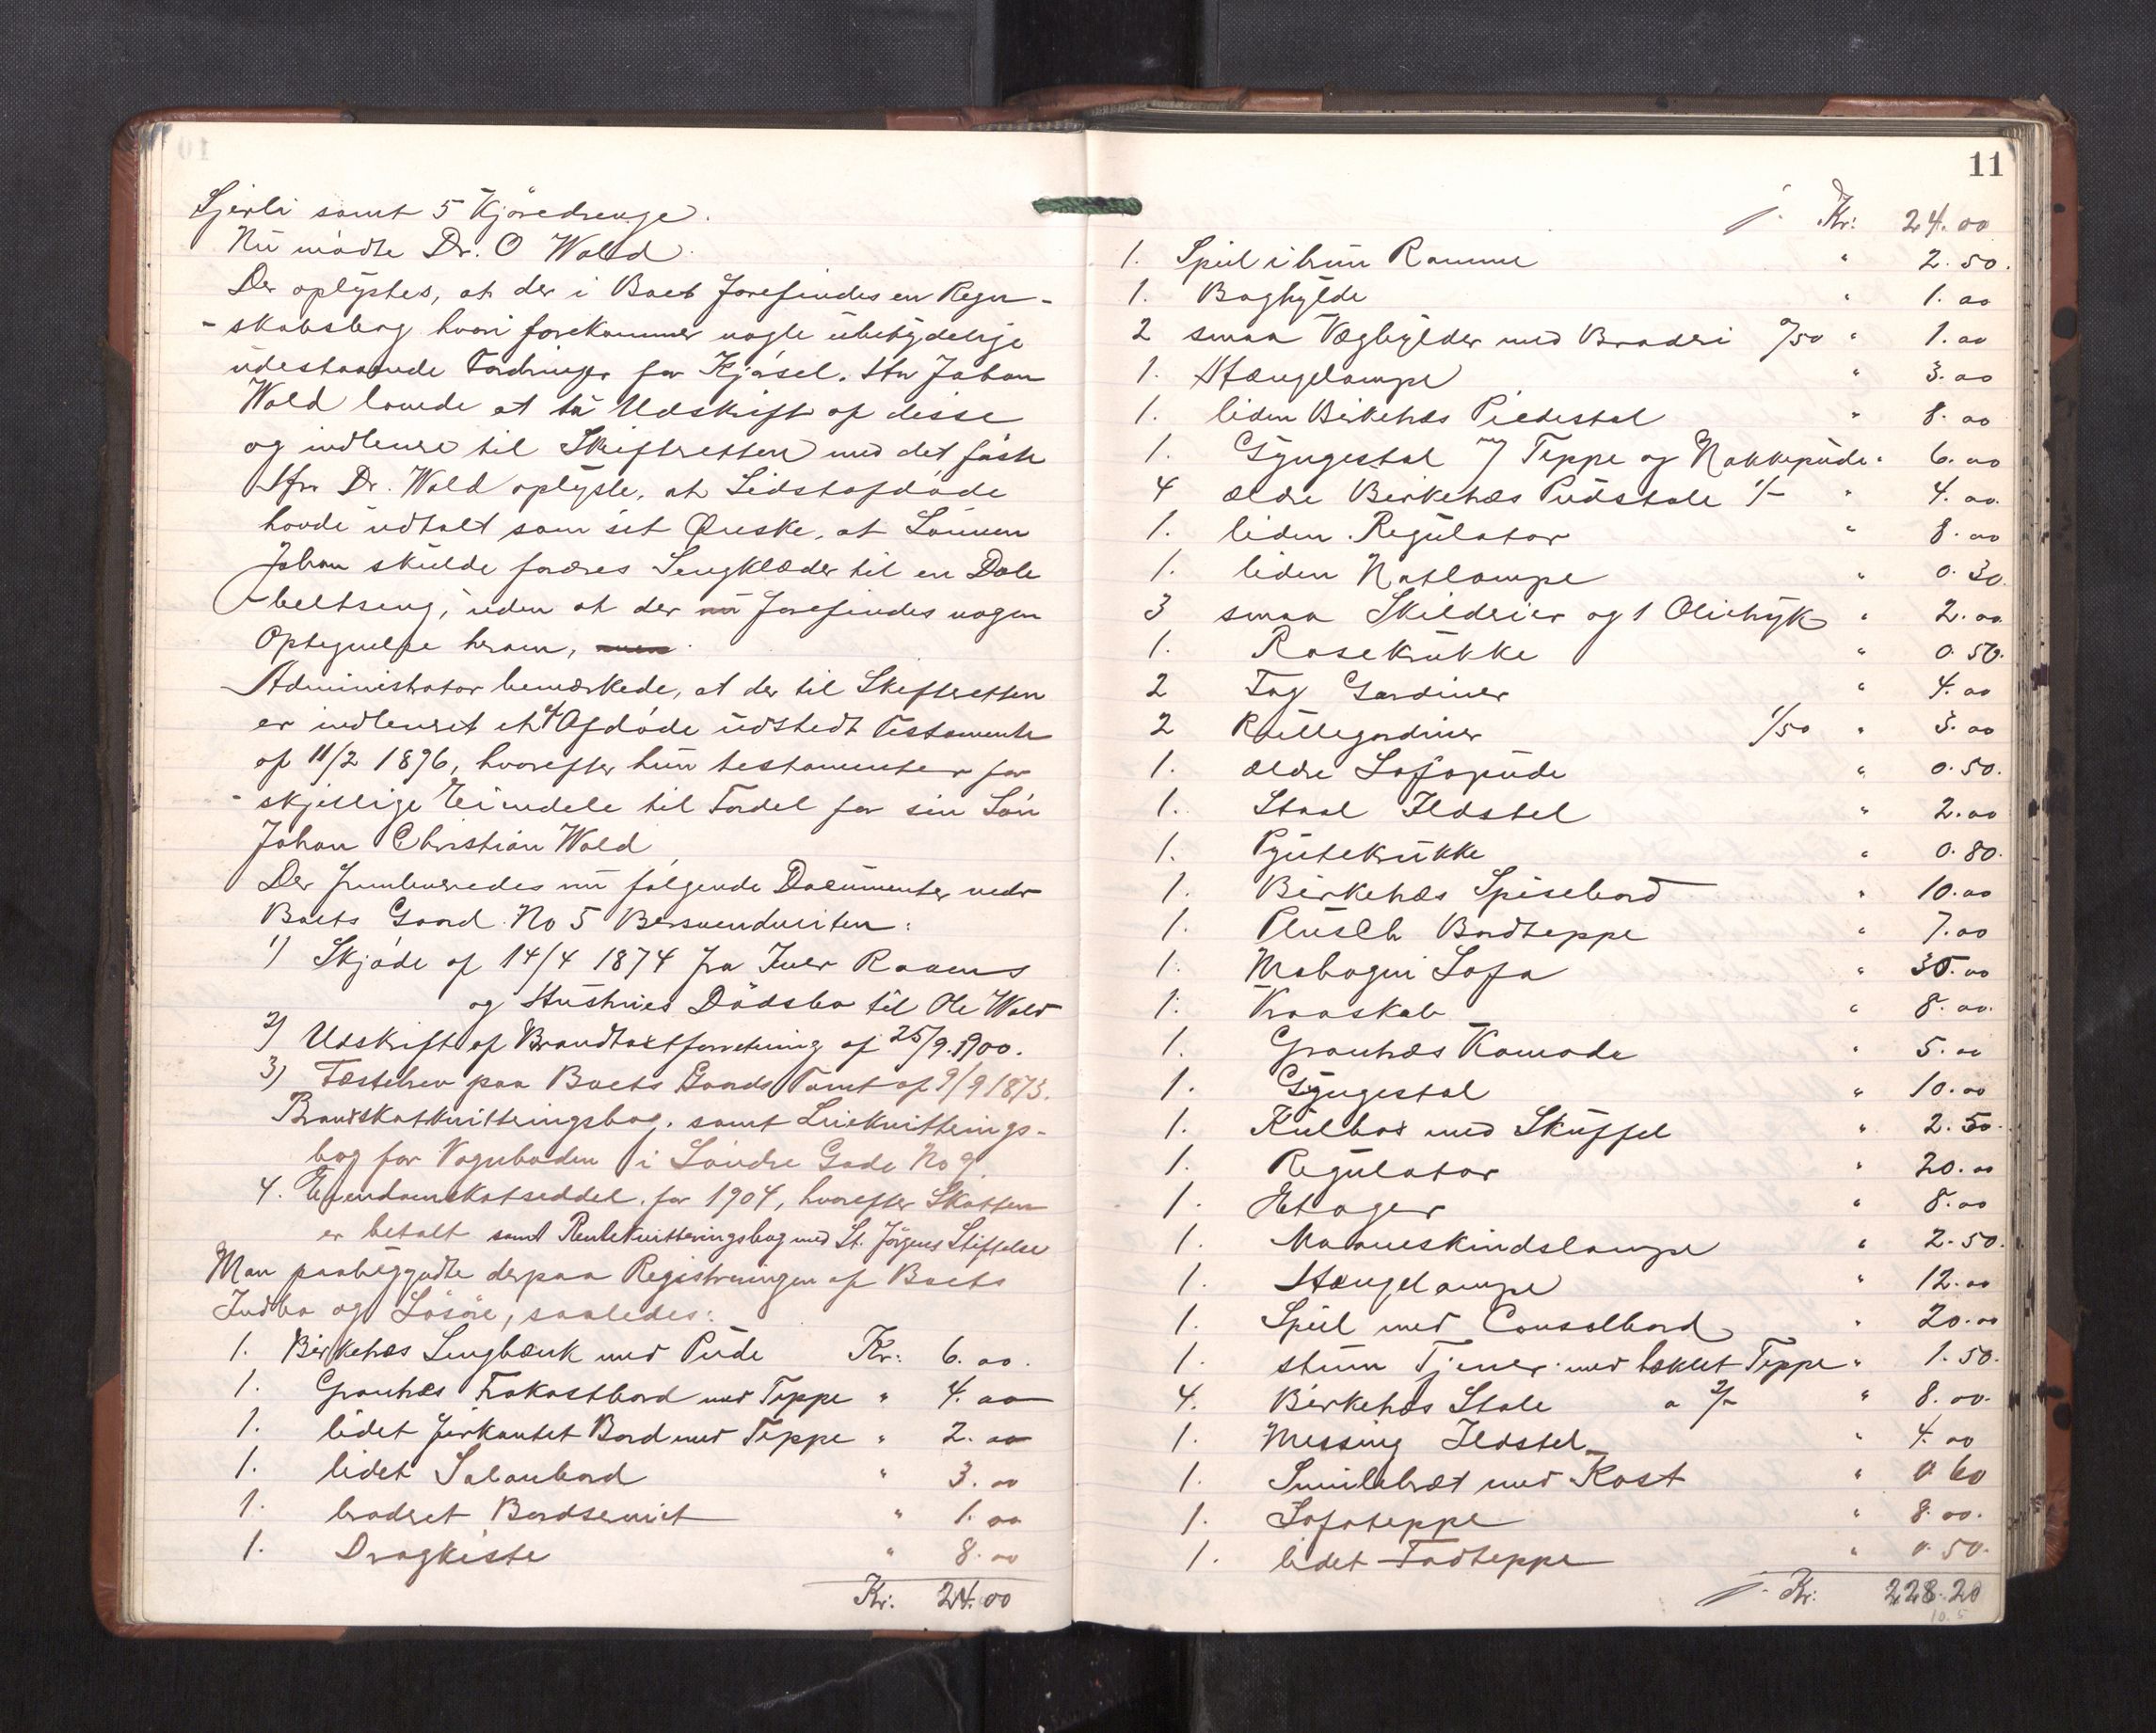 samt 5 Kjøredrenge.
Nu mødte Dr. O Wold.
Der oplystes, at der i Boet forefindes en Regn-
-skabsbog hvori forekommer nogle ubetydelige
udestaaende Fordringer for Kjøsel. Hr Johan
Wold lovede at ta Udskrift af disse
og indlevere til Skifteretten med det første
Hr. Dr. Wold oplyste, at Sidstafdøde
havde udtalt som sit Ønske, at Sønnen
Johan skulde foræres Sengklæder til en Dob-
beltseng, uden at der forefindes nogen
Optegnelse herom,
Administrator bemærkede, at der til Skifteretten
er indleveret et af Afdøde udstedt Testamente
af 11/2 1896, hvorefter hun testamenterer for
-skjellige Eiendele til Fordel for sin Søn
Johan Christian Wold
Der fremlagdes nu følgende Documenter vedr
Boets Gaard No 5
1) Skjøde af 14/4 1874 fra Iver Raaens
og Hustrues Dødsbo til Ole Wold
2) Udskrift af Brandtaxtforretning af 25/9.1900.
3) Festebrev paa Boets Gaards Tomt af 9/9 1873.
Brandskatkvitteringsbog. samt Leiekvitterings-
bog for Vognboden i Søndre Gade No 9.
4. Eiendomsskatseddel. for 1904, hvorefter Skatten
er betalt samt Rentekvitteringsbog med St. Jørgens Stiftelse
Man paabegyndte derpaa Registreringen af Boets
Indbo og Løsøre, saaledes:
1. Birketræs Sengbænk med Pude Kr: 6.00.
1. Grantræs Frokostbord med Teppe " 4.00
1. lidet firkantet Bord med Teppe " 2.00
1. lidet Salonbord " 3.00
1. broderet Bordserviet " 1.00
1. Dragkiste " 8.00
Kr: 24.00
11
Kr: 24.00
1. Speil i brun Ramme " 2.50.
1. Boghylde " 1.00
2 smaa Væghylder med Broderi 0/50 " 1.00
1. Hængelampe " 3.00
1. liden Birketræs Piedestal " 8.00
1. Gyngestol m/ Teppe og Nakkepude " 6.00
4 ældre Birketræs Pudstole 1/- " 4.00.
1. liden Regulator " 8.00
1. liden Natlampe " 0.30.
3 smaa Skilderier og 1 Olietryk " 2.00
1. Rosekrukke " 0.50.
2 Fag Gardiner " 4.00
2 Rullegardiner 1/50 " 3.00
1. ældre Sofapude " 0.50.
1. Staal Ildstel " 2.00
1. Pyntekrukke " 0.80.
1. Birketræs Spisebord " 10.00
1. Plusch Bordteppe " 7.00
1. Mahogni Sofa " 30.00
1. Kroskab " 8.00.
1. Grantræs Komode " 5.00
1. Gyngestol " 10.00
1. Kulbox med Skuffel " 2.50.
1. Regulator " 20.00
1. Etager " 8.00
1. Maaneskindslampe " 2.50.
1. Hængelampe " 12.00
1. Speil med Consolbord " 20.00
1. stum Tjener med hæklet Teppe " 1.50.
4. Birketræs Stole a 2/- " 8.00.
1. Messing Ildstel " 4.00
1. Smulebræt med Kost " 0.60
1. Sofateppe " 8.00.
1. lidet Fodteppe " 0.50.
Kr: 228.20